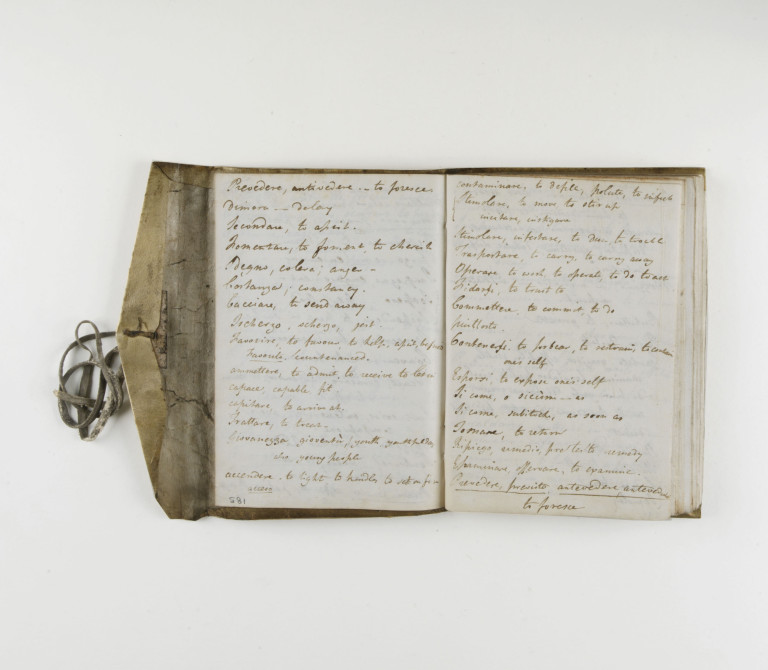 Prevedere, antivedere -- to foresee
Dimora -- delay
Secondare, to assist.
Fomentare, to foment to cherish
Sdegno, colera; anger -
Costanza; constancy.
Cacciare, to send away
Ischerzo, scherzo, jest
Favorire, to favour to help, assist,
Favorule, Countenanced.
ammettere, to admit, to receive to
capace capable fit
capitare, to arrive at.
Trattare, to treat.
Giovanezza gioventù, youth
young people
accendere to light to kindle, to set on fire
181
contaminare, to defile, polute, to infect
Stimolare, to move to stir up
incitare, instigare
Stimolare, infestare, to Dun, to teaze
Trasportare, to carry, to carry away
Operare to work to operate, to do to act
Fidarsi, to trust to
Commettere, to commit, to do
piuttosto
Contenersi to forbear, to restrain,
one's self
Esporsi to expose one's self
Si come, o siccome -- as
Si come, as soon as
Tornare, to return
Ripiego, rimedio, remedy
Esaminare, osservare, to examine.
Prevedere, previsto, antevedere, antevedere
to foresee